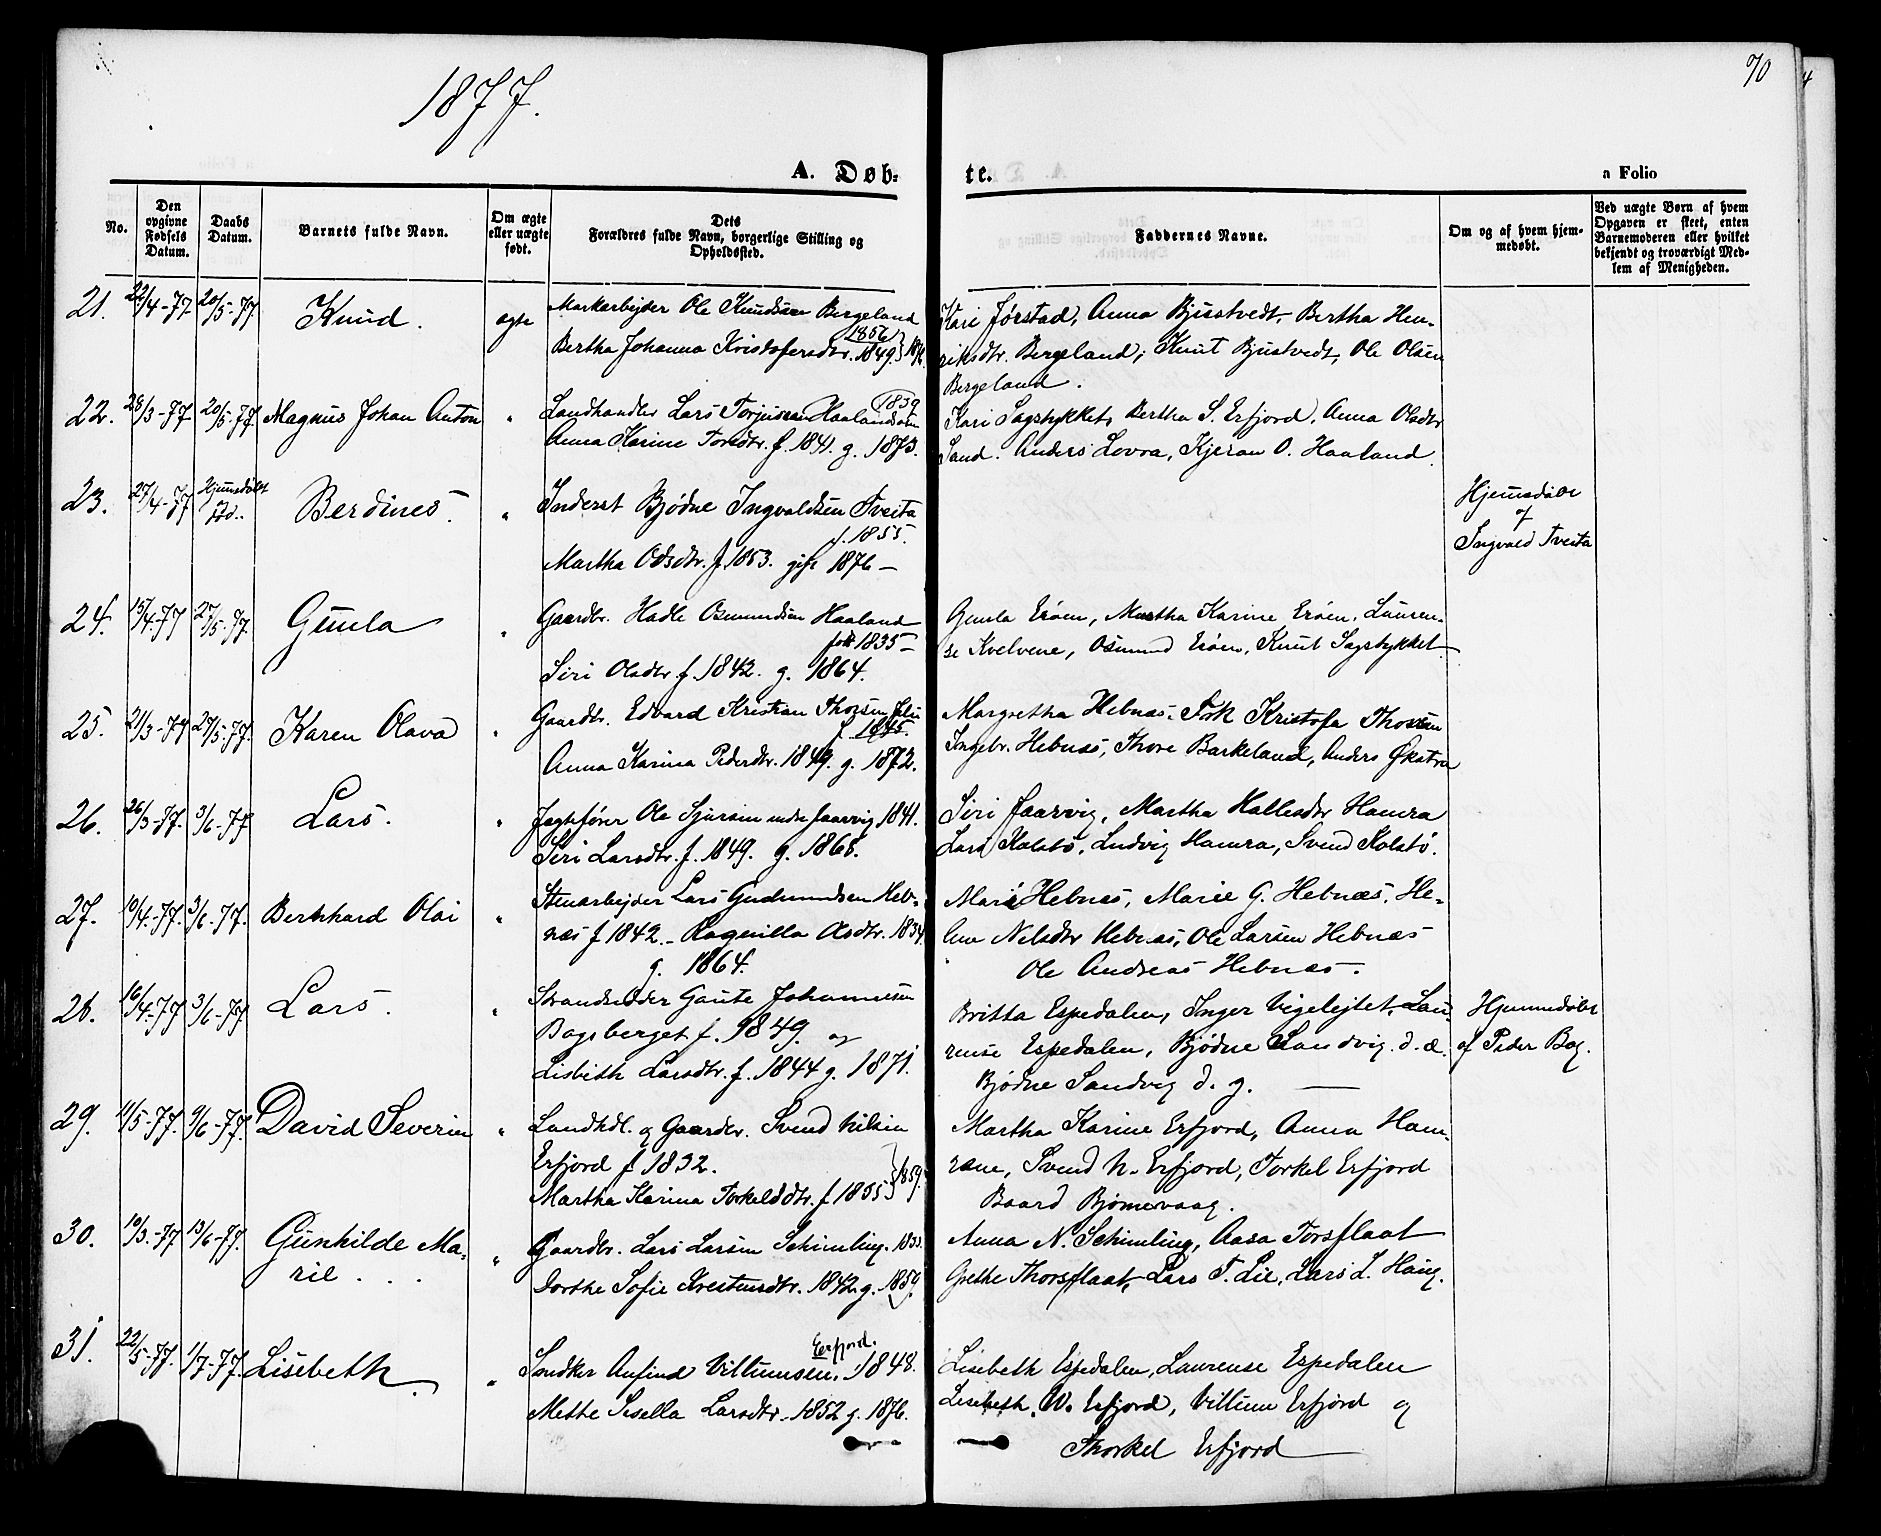 1877.
70
A. Døb-
te.
a Folio
No.
Den opgivne Fødsels Datum.
Daabs Datum.
Barnets fulde Navn.
Om ægte eller uægte født.
Dets Forældres fulde Navn, borgerlige Stilling og Opholdssted.
Faddernes Navne.
Om og af hvem hjemmedøbt.
Ved uægte Børn af hvem Opgaven er skeet, enten Barnemoderen eller hvilket bekjendt og troværdigt Medlem af Menigheden.
21. 22/4-77 20/5-77 Knud. ægte Markarbejder Ole Knudsen Bergeland 1856
Bertha Johanna Kristofersdtr. 1849.
Kari Jørstad, Anna Bjustvedt, Bertha Hen-
riksdtr. Bergeland, Knut Bjustvedt, Ole Olsen
Bergeland.
22. 28/3-77 20/5-77 Magnus Johan Anton " Landhandler Lars Torjussen Haaland 1839
Anna Karine Torsdtr. f. 1841. g. 1873.
Kari Sagstykket, Bertha S. Erfjord, Anna Olsdtr
Sand. Anders Lovra, Kjeran O. Haaland.
23. 27/4-77 Hjemsdøbt Berdines. " Inderst Bjødne Ingvaldsen Tveita
f. 1855.
Martha Odsdtr. f. 1853. gift 1876 —
Hjemsdøbt
af
Ingvald Tveita
24. 15/4-77 27/5-77. Gunla " Gaardbr. Hadle Osmundsen Haaland
født 1835 —
Siri Olsdtr f. 1842. g. 1864.
Gunla Erøen, Martha Karine Erøen, Lauren-
se Kvelvene, Osmund Erøen, Knut Sagstykket
25. 21/3-77 27/5-77. Karen Olava " Gaardbr. Edvard Kristian Thorsen
f. 1845.
Anna Karina Pedersdtr. 1849. g. 1872.
Margretha Hebnæs. Frk Kristofa Thorsen
Ingebr. Hebnæs, Thore Barkeland, Anders Økstra
26. 26/3-77. 3/6-77 Lars. " Jagtfører Ole Sjursen indre Jaarvig 1841.
Siri Larsdtr. f. 1849. g. 1868.
Siri Jaarvig, Martha Hallesdtr Hamra
Lars Kolstø, Ludvig Hamra, Svend Kolstø.
27. 10/4-77. 3/6-77. Bernhard Olai " Stenarbejder Lars Gudmundsen Heb-
næs f 1842. - Ragnilla Olsdtr. 1834.
g. 1864.
Marie Hebnæs, Marie G. Hebnæs. He-
lene Nelsdtr Hebnæs, Ole Larsen Hebnæs
Ole Andreas Hebnæs.
28. 16/4-77 3/6-77 Lars. " Strandsidder Gaute Johannesen
Bagsberget f. 1849. og
Lisbeth Larsdtr. f. 1844 g. 1871.
Britta Espedalen, Inger Vigelejtet, Lau-
rense Espedalen, Bjødne Sandvig. d. æ.
Bjødne Sandvig d. y. —
Hjemmedøbt
af Peder Bag.
29. 11/5-77. 9/6-77. David Severin " Landhdl. og Gaardbr. Svend Nilsen
Erfjord f 1832.
Martha Karina Torkelsdtr. f 1835 } 1859.
Martha Karine Erfjord, Anna Ham-
rane, Svend N. Erfjord, Torkel Erfjord
Baard Bjømervaag.
30. 10/3-77 13/6-77. Gunhilde Ma-
rie . . . " Gaardbr. Lars Larsen Schimling. 1833.
Dorthe Sofie Krestensdtr. 1842 g. 1859.
Anna N. Schimling, Aasa Torsflaat
Grethe Thorsflaat, Lars T. Lie, Lars L. Haug.
31. 22/5-77. 1/7-77. Lisebeth. " Snedker Anfind Villumsen, Erfjord. 1848.
Mette Sisella Larsdtr. 1852 g. 1876.
Lisebeth Espedalen, Laurense Espedalen
Lisebeth W. Erfjord, Villum Erfjord og
Thorkel Erfjord